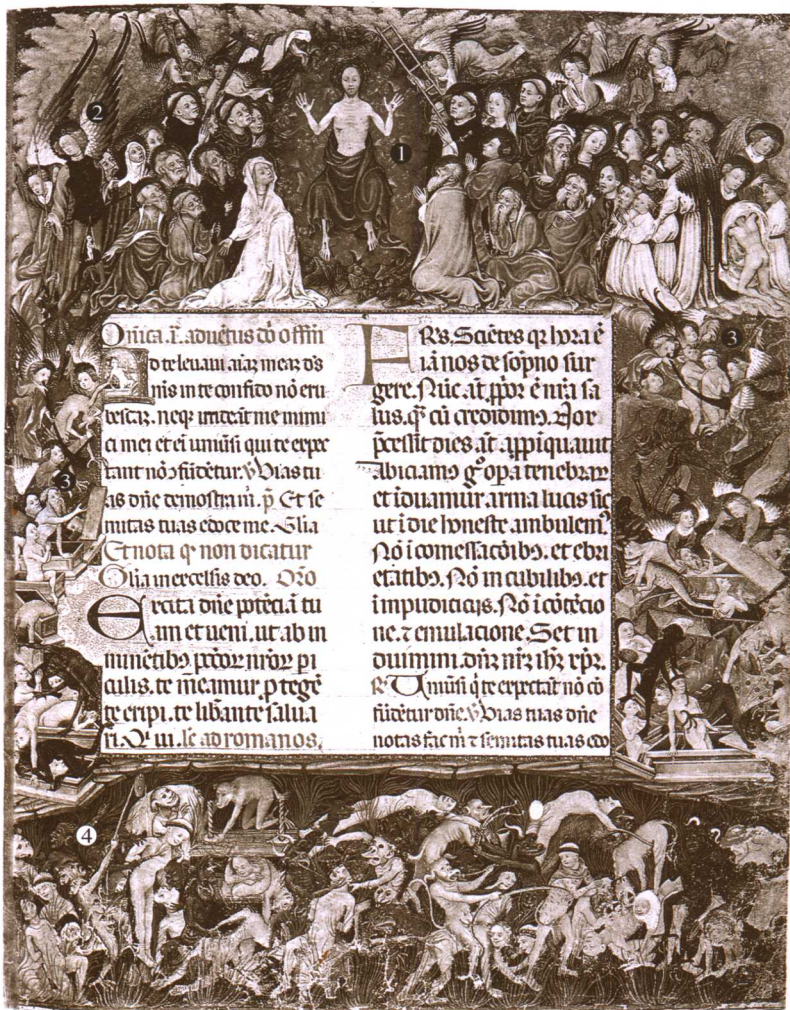 2
1
3
3
4
Dn̄ica. ī. aduētus dō offm̄
d te leuaui aīaꝫ meaꝫ d̄s
m̄s in te confido nō eru
bescaꝫ. neqꝫ irrideāt me inimi
ci mei et eī uniūsi qui te expec
tant nō ↄfūdētur. ꝟ Uias tu
as dn̄e demōstra m̄. p̄. Et se
mitas tuas edoce me. Gl̄ia
Et nota ꝙ non dicatur
Gl̄ia in excelsis deo. Or̄o
Excita dn̄e potēciā tu
am et ueni. ut ab in
minētibꝫ pccōꝝ nr̄oꝝ pi
culis. te meamur ꝓtegē
te eripi. te libāte salua
ri. Q̄ ui. le ad romanos.
FRs. Sciētes qꝛ hora ē
iā nos de sōpno sur
gere. Nūc aūt ꝓpoꝛ ē nr̄a sa
lus. q̄ꝫ cū credidimꝰ. Nox
p̄cessit dies aūt appīquauit
Abiciamꝰ gͦ op̄a tenebraꝝ
et īduamur arma lucis sic
ut ī die honeste ambulemꝰ
Nō ī comessacōibꝫ. et ebri
etatibꝫ. Nō in cubilibꝫ. et
impudiciciis. Nō ī cōtēcio
ne. ⁊ emulacione. Set in
duimini. dn̄ꝫ nr̄ꝫ ih̄ꝫ xp̄ꝫ.
℟ Uniūsi q̄ te expectāt nō cō
fūdētur dn̄e. ꝟ Uias tuas dn̄e
notas fac m̄ ⁊ semitas tuas edo